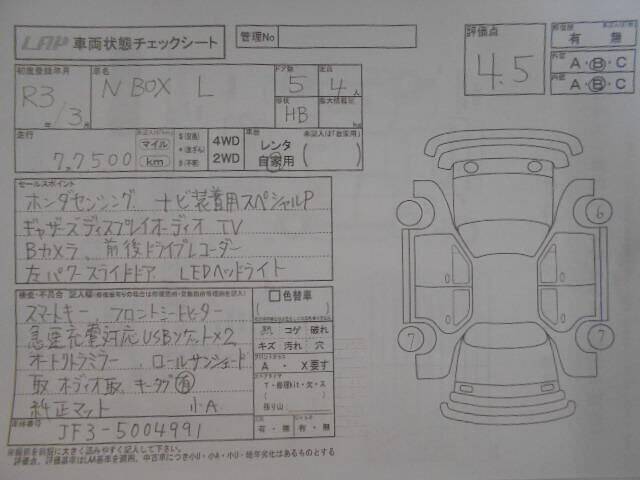 LAP 車両状態チェックシート
管理No
評価点
4.5
有 無
外装 A・Ⓑ・C
内装 A・Ⓑ・C
初度登録年月
R3年/3月
車名
N BOX L
ドア数
5
定員
4人
形状
HB
最大積載量
kg
走行
7,7500
マイル
km
$(改ざん)
*(不明)
4WD
2WD
車歴
レンタ
自家用
( )
セールスポイント
ホンダセンシング ナビ装着用スペシャルP
ギャザーズディスプレイオーディオ TV
Bカメラ、前後ドライブレコーダー
左パワースライドドア LEDヘッドライト
検査・不具合 記入欄
スマートキー フロントシートヒーター
急速充電対応USBソケット×2
オートリトラミラー ロールサンシェード
取 オーディオ取、キータグ㊒
純正マット 小A
色替車
コゲ 破れ
キズ 汚れ 穴
A ・ X要す
残り山
有・無 有・無
車体番号
JF3-5004991
6
7
7
評価点、評価基準はLAA基準を適用、中古車につき小U・小A・小U・経年劣化はあるものとする